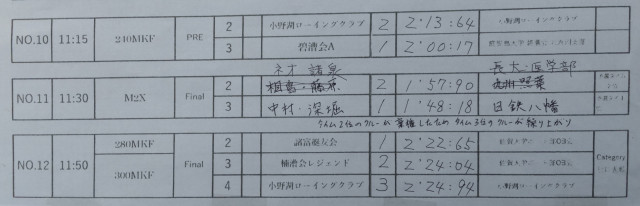 NO.10 11:15 240MKF PRE 2 小野湖ローイングクラブ 2 2'13:64 小野湖ローイングクラブ
3 碧漕会A 1 2'00:17
ネオ諸泉 長大・医学部
NO.11 11:30 M2X Final 2 2 1'57:90
3 中村・深堀 1 1'48:18 日鉄八幡
タイム2位のクルーが棄権したためタイム3位のクルーが繰り上がり
NO.12 11:50 280MKF Final 2 諸富艇友会 1 2'22:65
300MKF 3 楠漕会レジェンド 2 2'24:04 Category
4 小野湖ローイングクラブ 3 2'24:94 小野湖ローイングクラブ